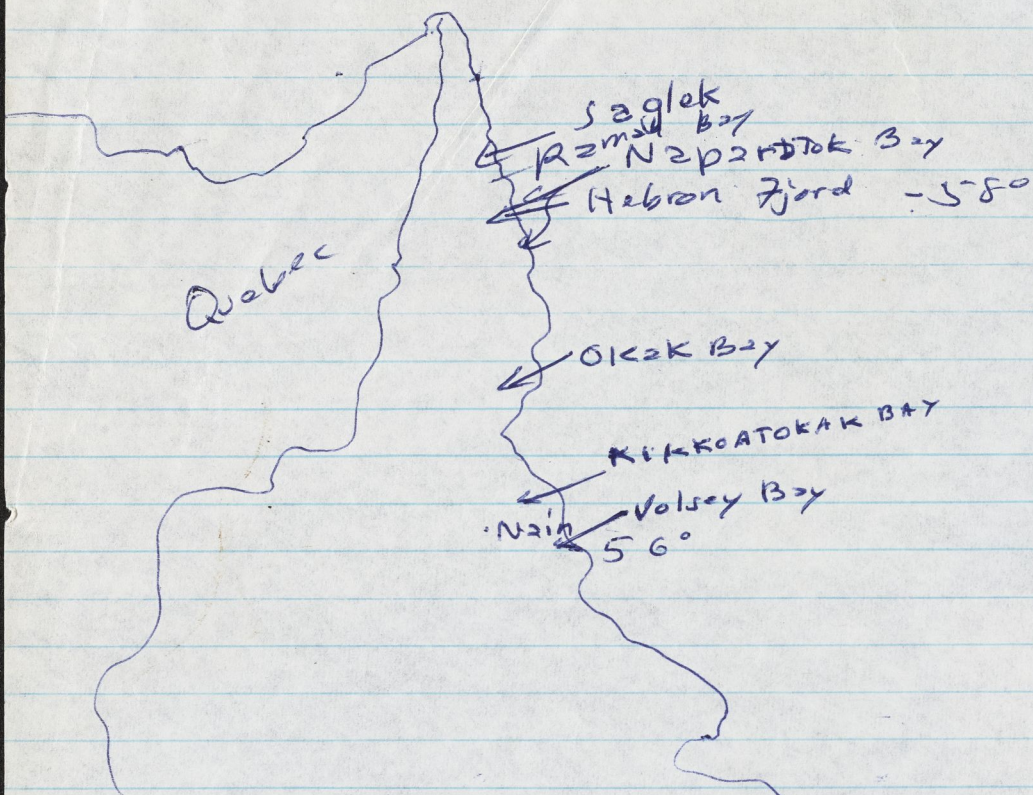 Saglek
Ramah Bay
Napartok Bay
Hebron Fjord - 58°
Quebec
Okak Bay
KIKKOATOKAK BAY
Voisey Bay
Nain
56°